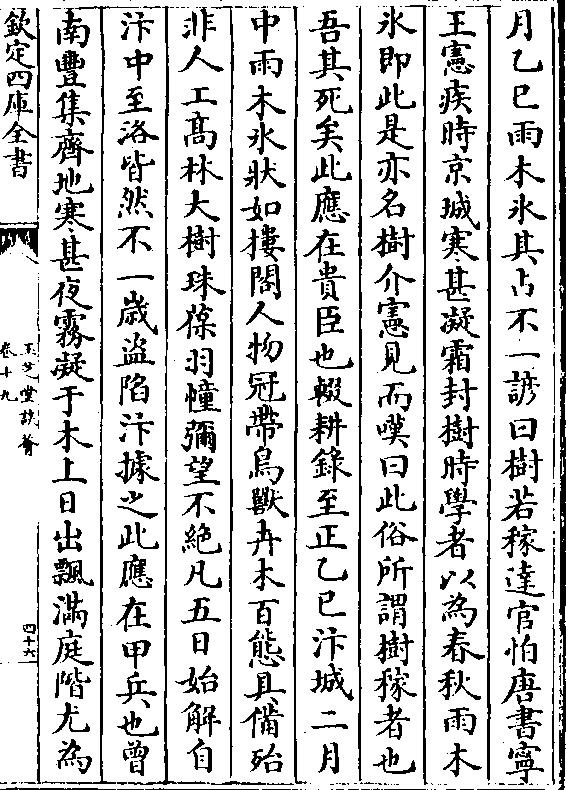 月乙巳雨木氷其占不一諺曰樹若稼達官怕唐書寧
王憲疾時京城寒甚凝霜封樹時學者以為春秋雨木
氷即此是亦名樹介憲見而嘆曰此俗所謂樹稼者也
吾其死矣此應在貴臣也輟耕錄至正乙巳汴城二月
中雨木氷狀如樓閣人物冠帶鳥獸卉木百態具備殆
非人工髙林大樹珠葆羽幢彌望不絶凡五日始解自
汴中至洛皆然不一歲盜陷汴據之此應在甲兵也曾
南豐集齊地寒甚夜霧凝于木上日出飄滿庭階尤為
欽定四庫全書
玉芝堂談薈
卷十九
四十六